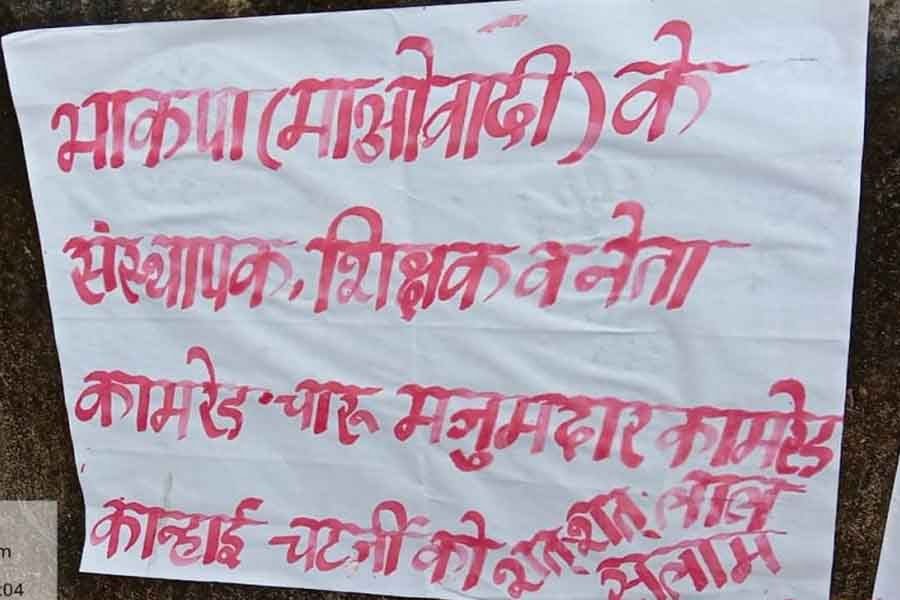 भाकपा (माओवादी) के
संस्थापक, शिक्षक व नेता
कामरेड चारू मजुमदार कामरेड
कान्हाई चटर्जी को शत-शत लाल
सलाम
m
:04